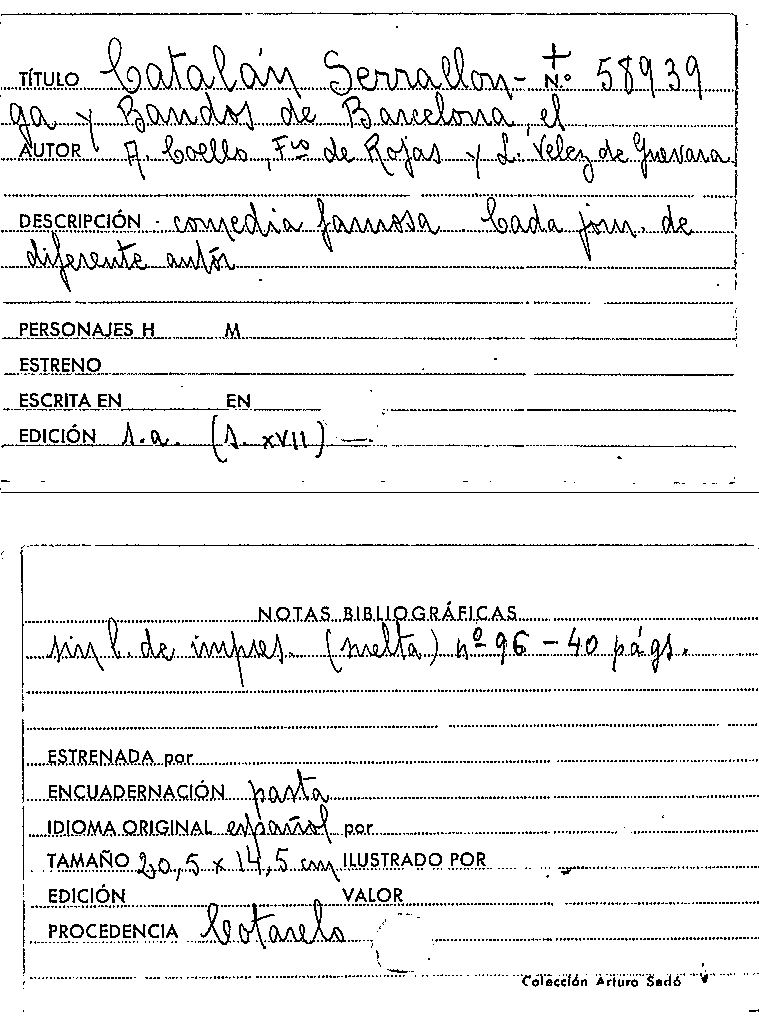 TÍTULO Catalán Serrallon- + N.º 58939
ga y Bandos de Barcelona, el
AUTOR A. Coello, Fco de Rojas y L. Velez de Guevara
DESCRIPCIÓN comedia famosa Cada jorn. de
diferente autór
PERSONAJES H M
ESTRENO
ESCRITA EN EN
EDICIÓN s.a. (s. XVII) —.
NOTAS BIBLIOGRÁFICAS
sin l. de impres. (suelta) nº 96 - 40 págs.
ESTRENADA por
ENCUADERNACIÓN pasta
IDIOMA ORIGINAL español por
TAMAÑO 20,5 x 14,5 cm ILUSTRADO POR
EDICIÓN VALOR
PROCEDENCIA Cotarelo
Colección Arturo Sedó